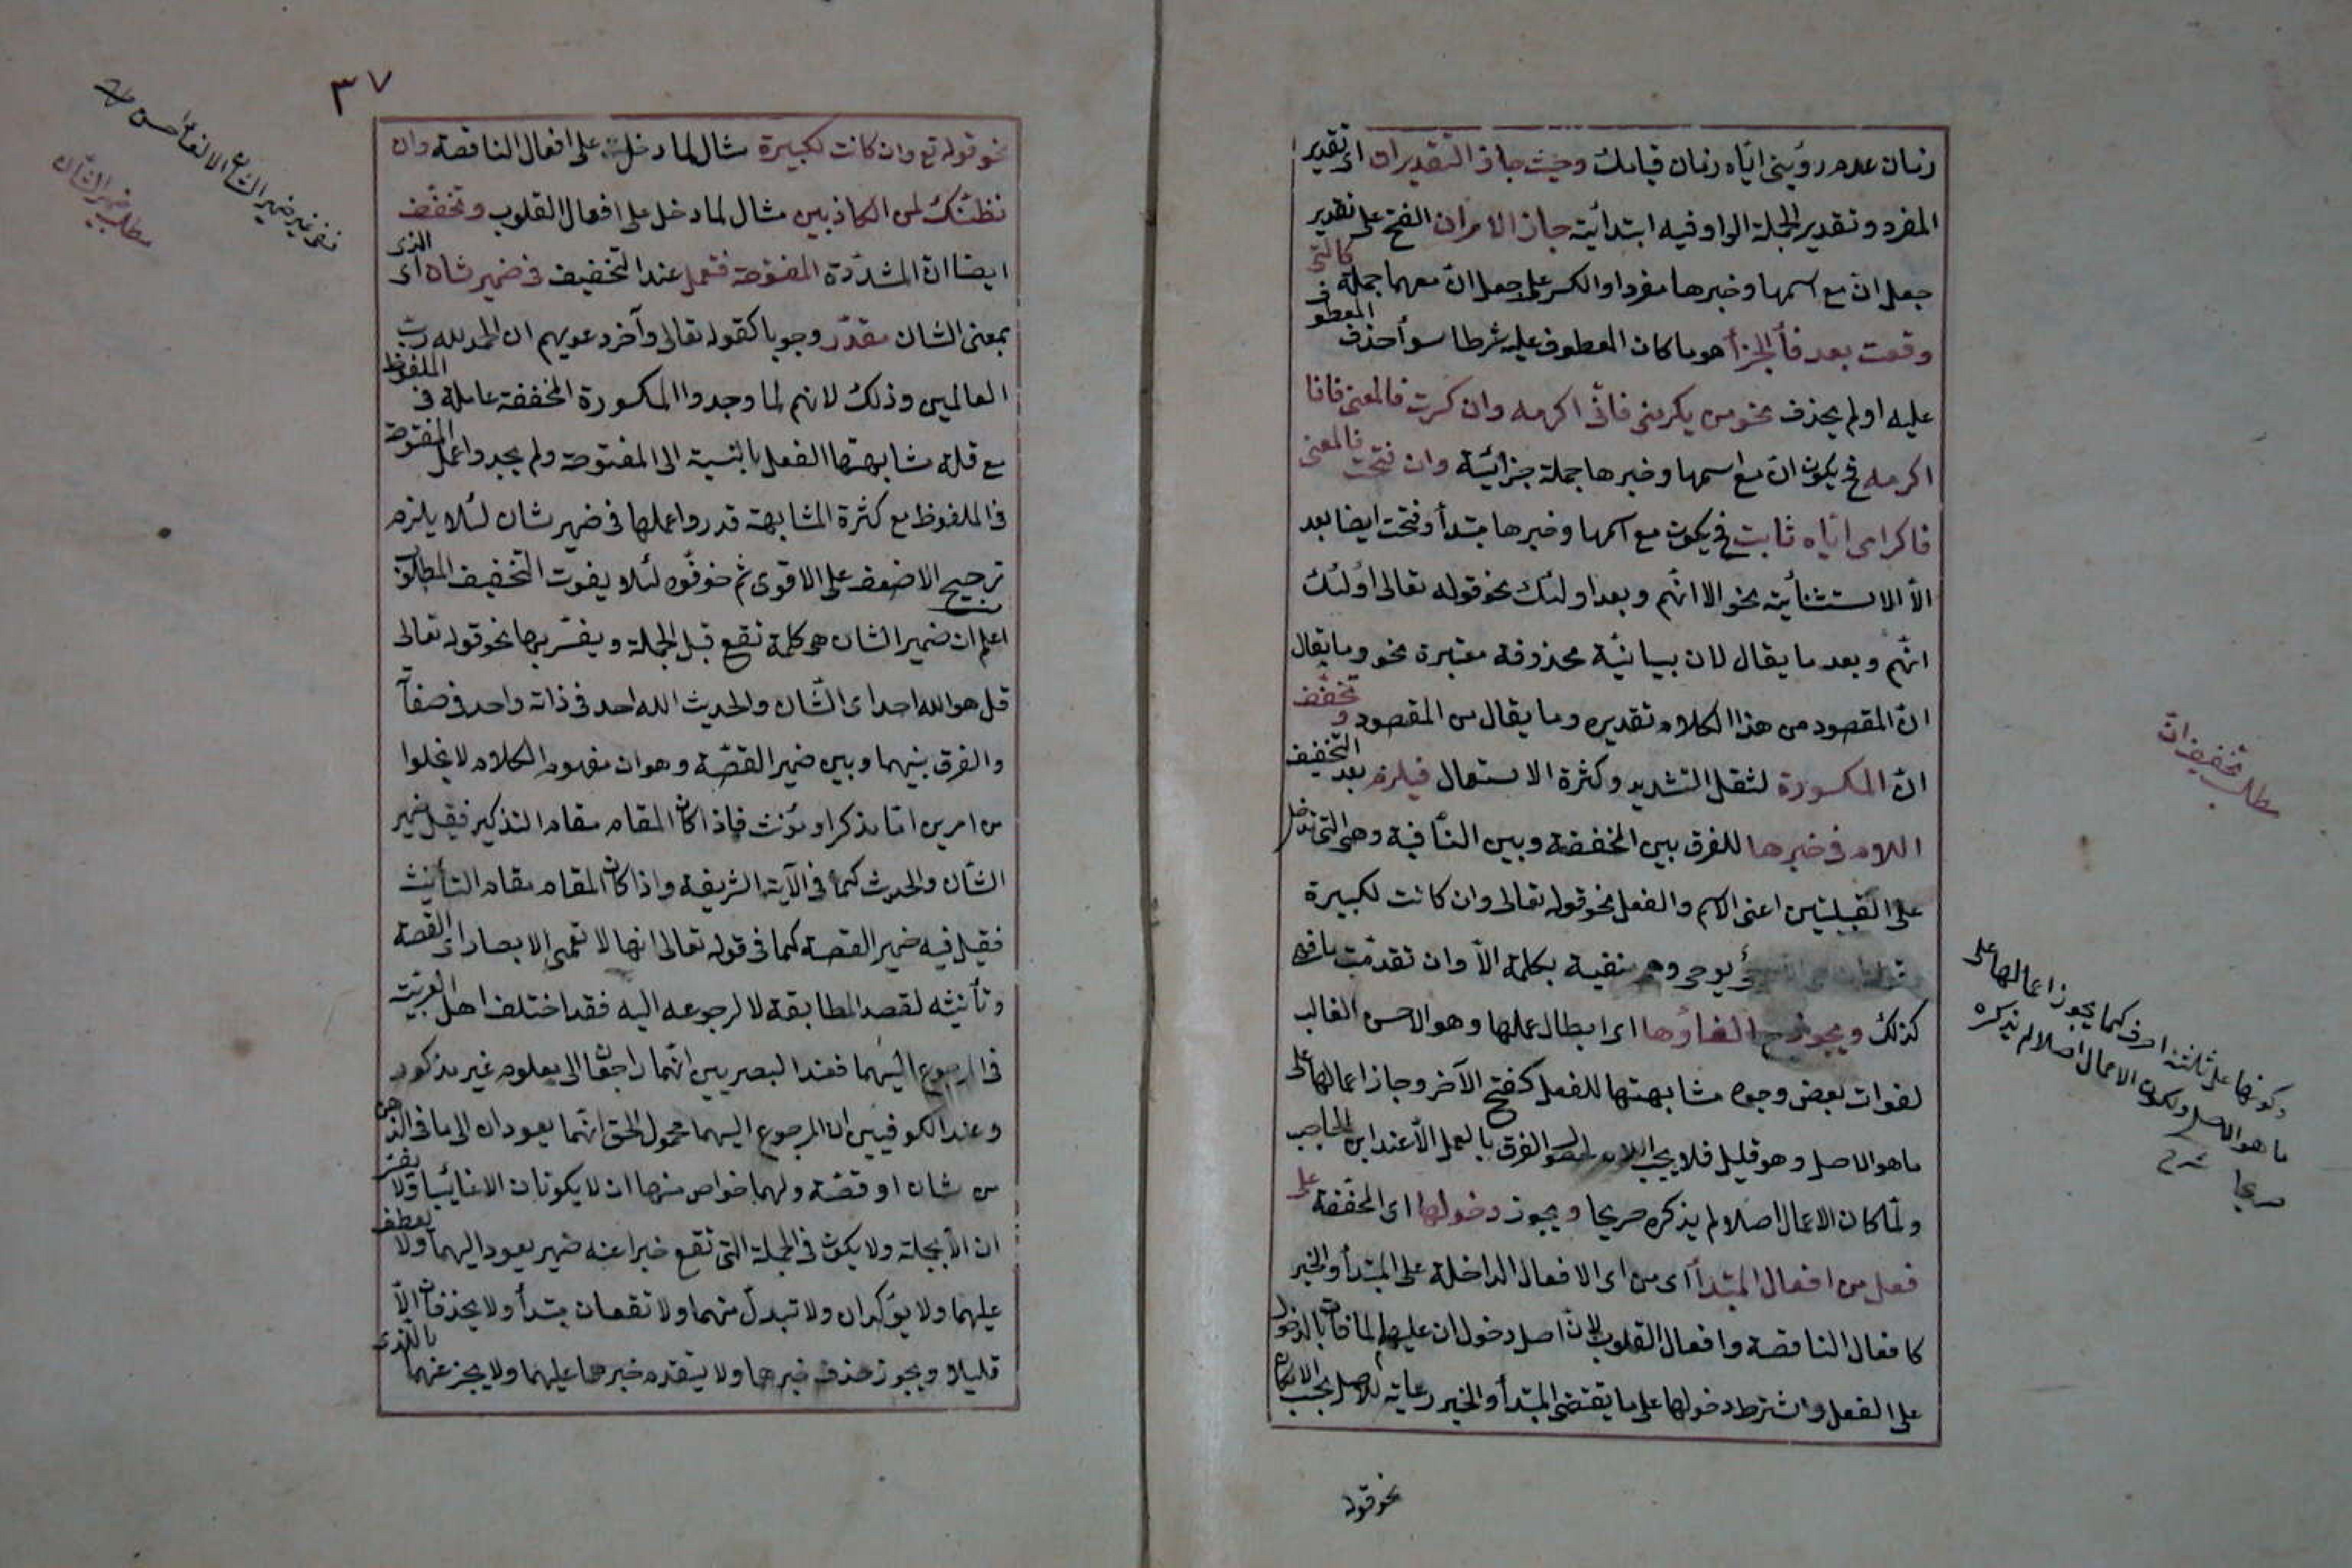 زمان عدم رؤيتى اياه زمان قيامك وحيث جاز التقديران اى تقدير
المفرد وتقدير الجملة الواو فيه ابتدائية جاز الامران الفتح على تقدير
جعل ان مع اسمها وخبرها مفردا والكسر على جعل ان معهما جملة كالتى فى
وقعت بعد فأ الجزأ هو ما كان المعطوف عليه شرطا سوأ حذف المعطو
عليه او لم يحذف نحو من يكرمنى فانى اكرمه وان كسرت فالمعنى فانا
اكرمه فح يكون ان مع اسمها وخبرها جملة جزائية وان فتحت فالمعنى
فاكرامى اياه ثابت فح يكون مع اسمها وخبرها مبتدأ وفتحت ايضا بعد
الا الاستثنائية نحو الا انهم وبعد اولئك نحو قوله تعالى اولئك
انهم وبعد ما يقال لان بيانية محذوفة معتبرة نحو وما يقال
ان المقصود من هذا الكلام تقديره وما يقال من المقصود وتخفف
ان المكسورة لثقل التشديد وكثرة الاستعمال فيلزم بعد التخفيف
اللام فى خبرها للفرق بين المخففة وبين النافية وهى التى تدخل
على القبيلتين اعنى الاسم والفعل نحو قوله تعالى وان كانت لكبيرة
يوحى وهى منفية بكلمة الا وان تقدمت ما فهى
كذلك ويجوز ح الغاؤها اى ابطال عملها وهو الاحسن الغالب
لفوات بعض وجوه مشابهتها للفعل كفتح الآخر وجاز اعمالها على
ما هو الاصل وهو قليل فلا يجب اللام الفرق بالعمل الا عند ابن الحاجب
ولما كان الاعمال اصلا لم يذكره صريحا ويجوز دخولها اى المخففة على
فعل من افعال المبتدأ اى من اى الافعال الداخلة على المبتدأ والخبر
كافعال الناقصة وافعال القلوب لان اصل دخول ان عليهما لما فات بالدخول
على الفعل واشترط دخولها على ما يقتضى المبتدأ والخبر رعاية للاصل بحسب الامكان
نحو قوله
مطلب تخفيف ان
وكونها على ثلثة احرف كما يجوز اعمالها على
ما هو الاصل ولكون الاعمال اصلا لم يذكره
صريحا شرح
٣٧
نحو قوله تع وان كانت لكبيرة مثال لما دخل على افعال الناقصة وان
نظنك لمن الكاذبين مثال لما دخل على افعال القلوب وتخفف
ايضا ان المشددة المفتوحة فتعمل عند التخفيف فى ضمير شان اى الذى
بمعنى الشان مقدر وجوبا كقوله تعالى وآخر دعويهم ان الحمد لله رب
العالمين وذلك لانهم لما وجدوا المكسورة المخففة عاملة فى الملفوظ
مع قلة مشابهتها الفعل بالنسبة الى المفتوحة ولم يجدوا عمل المفتوحة
فى الملفوظ مع كثرة المشابهة قدروا عملها فى ضمير شان لئلا يلزم
ترجيح الاضعف على الاقوى ثم حذفوه لئلا يفوت التخفيف المطلوب
اعلم ان ضمير الشان هو كلمة تقع قبل الجملة ويفسر بها نحو قوله تعالى
قل هو الله احد اى الشان والحديث الله احد فى ذاته واحد فى صفاته
والفرق بينهما وبين ضمير القصة وهو ان مفهوم الكلام لا يخلوا
من امرين اما مذكر او مؤنث فاذا كان المقام مقام التذكير فقيل ضمير
الشان والحديث كما فى الآية الشريفة واذا كان المقام مقام التأنيث
فقيل فيه ضمير القصة كما فى قوله تعالى انها لا تعمى الابصار اى القصة
وتأنيثه لقصد المطابقة لا لرجوعه اليه فقد اختلف اهل العربية
فى المرجوع اليهما فعند البصريين انهما راجعان الى معلوم غير مذكور
وعند الكوفيين ان المرجوع اليهما مجهول الحق انهما يعودان الى ما فى الذهن
من شان او قصة ولهما خواص منها ان لا يكونان الا غائبا ولا يفسر
ان الا بجملة ولا يكون فى الجملة التى تقع خبرا عنه ضمير يعود اليهما ولا يعطف
عليهما ولا يؤكدان ولا تبدل منهما ولا تقعان مبتدأ ولا يحذفان الا
قليلا ويجوز حذف خبرها ولا يتقدم خبرهما عليهما ولا يخبر عنهما بالذى
مطلب ضمير الشان